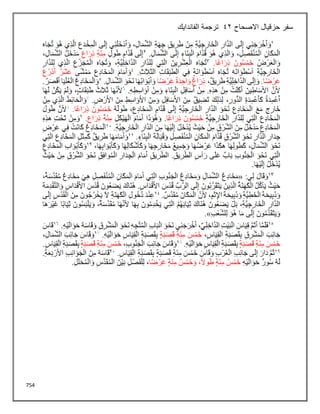 سفر حزقيال الاصحاح ٤٢ ترجمة الفاندايك
١وَأَخْرَجَنِي إِلَى الدَّارِ الْخَارِجِيَّةِ مِنْ طَرِيقِ جِهَةِ الشِّمَالِ، وَأَدْخَلَنِي إِلَى الْمِخْدَعِ الَّذِي هُوَ تُجَاهَ
الْمَكَانِ الْمُنْفَصِلِ، وَالَّذِي هُوَ قُدَّامَ الْبِنَاءِ إِلَى الشِّمَالِ. ٢إِلَى قُدَّامِ طُولِ مِئَةِ ذِرَاعٍ مَدْخَلُ الشِّمَالِ،
وَالْعَرْضُ خَمْسُونَ ذِرَاعًا. ٣تُجَاهَ الْعِشْرِينَ الَّتِي لِلدَّارِ الدَّاخِلِيَّةِ، وَتُجَاهَ الْمُجَزَّعِ الَّذِي لِلدَّارِ
الْخَارِجِيَّةِ أُسْطُوانَةٌ تُجَاهَ أُسْطُوانَةٍ فِي الطَّبَقَاتِ الثَّلاَثِ. ٤وَأَمَامَ الْمَخَادِعِ مَمْشًى عَشْرُ أَذْرُعٍ
عَرْضًا. وَإِلَى الدَّاخِلِيَّةِ طَرِيقٌ، ذِرَاعٌ وَاحِدَةٌ عَرْضًا وَأَبْوَابُهَا نَحْوَ الشِّمَالِ. ٥وَالْمَخَادِعُ الْعُلْيَا أَقْصَرُ.
لأَنَّ الأَسَاطِينَ أَكَلَتْ مِنْ هذِهِ. مِنْ أَسَافِلِ الْبِنَاءِ وَمِنْ أَوَاسِطِهِ. ٦لأَنَّهَا ثَلاَثُ طَبَقَاتٍ، وَلَمْ يَكُنْ لَهَا
أَعْمِدَةٌ كَأَعْمِدَةِ الدُّورِ، لِذلِكَ تَضِيقُ مِنَ الأَسَافِلِ وَمِنَ الأَوَاسِطِ مِنَ الأَرْضِ. ٧وَالْحَائِطُ الَّذِي مِنْ
خَارِجٍ مَعَ الْمَخَادِعِ نَحْوَ الدَّارِ الْخَارِجِيَّةِ إِلَى قُدَّامِ الْمَخَادِعِ، طُولُهُ خَمْسُونَ ذِرَاعًا. ٨لأَنَّ طُولَ
الْمَخَادِعِ الَّتِي لِلدَّارِ الْخَارِجِيَّةِ خَمْسُونَ ذِرَاعًا. وَهُوَذَا أَمَامَ الْهَيْكَلِ مِئَةُ ذِرَاعٍ. ٩وَمِنْ تَحْتِ هذِهِ
الْمَخَادِعِ مَدْخَلٌ مِنَ الشَّرْقِ مِنْ حَيْثُ يُدْخَلُ إِلَيْهَا مِنَ الدَّارِ الْخَارِجِيَّةِ. ١٠اَلْمَخَادِعُ كَانَتْ فِي عَرْضِ
جِدَارِ الدَّارِ نَحْوَ الشَّرْقِ قُدَّامَ الْمَكَانِ الْمُنْفَصِلِ وَقُبَالَةَ الْبِنَاءِ. ١١وَأَمَامَهَا طَرِيقٌ كَمِثْلِ الْمَخَادِعِ الَّتِي
نَحْوَ الشِّمَالِ، كَطُولِهَا هكَذَا عَرْضُهَا وَجَمِيعُ مَخَارِجِهَا وَكَأَشْكَالِهَا وَكَأَبْوَابِهَا. ١٢وَكَأَبْوَابِ الْمَخَادِعِ
الَّتِي نَحْوَ الْجَنُوبِ بَابٌ عَلَى رَأْسِ الطَّرِيقِ. الطَّرِيقُ أَمَامَ الْجِدَارِ الْمُوافِقِ نَحْوَ الشَّرْقِ مِنْ حَيْثُ
يُدْخَلُ إِلَيْهَا.
١٣وَقَالَ لِي: «مَخَادِعُ الشِّمَالِ وَمَخَادِعُ الْجَنُوبِ الَّتِي أَمَامَ الْمَكَانِ الْمُنْفَصِلِ هِيَ مَخَادِعُ مُقَدَّسَةٌ،
حَيْثُ يَأْكُلُ الْكَهَنَةُ الَّذِينَ يَتَقَرَّبُونَ إِلَى الرَّبِّ قُدْسَ الأَقْدَاسِ. هُنَاكَ يَضَعُونَ قُدْسَ الأَقْدَاسِ وَالتَّقْدِمَةَ
وَذَبِيحَةَ الْخَطِيَّةِ وَذَبِيحَةَ الإِثْمِ، لأَنَّ الْمَكَانَ مُقَدَّسٌ. ١٤عِنْدَ دُخُولِ الْكَهَنَةِ لاَ يَخْرُجُونَ مِنَ الْقُدْسِ إِلَى
الدَّارِ الْخَارِجِيَّةِ، بَلْ يَضَعُونَ هُنَاكَ ثِيَابَهُمُ الَّتِي يَخْدِمُونَ بِهَا لأَنَّهَا مُقَدَّسَةٌ، وَيَلْبَسُونَ ثِيَابًا غَيْرَهَا
وَيَتَقَدَّمُونَ إِلَى مَا هُوَ لِلشَّعْبِ».
١٥فَلَمَّا أَتَمَّ قِيَاسَ الْبَيْتِ الدَّاخِلِيِّ، أَخْرَجَنِي نَحْوَ الْبَابِ الْمُتَّجِهِ نَحْوَ الْمَشْرِقِ وَقَاسَهُ حَوَالَيْهِ. ١٦قَاسَ
جَانِبَ الْمَشْرِقِ بِقَصَبَةِ الْقِيَاسِ، خَمْسَ مِئَةِ قَصَبَةٍ بِقَصَبَةِ الْقِيَاسِ حَوَالَيْهِ. ١٧وَقَاسَ جَانِبَ الشِّمَالِ،
خَمْسَ مِئَةِ قَصَبَةٍ بِقَصَبَةِ الْقِيَاسِ حَوَالَيْهِ. ١٨وَقَاسَ جَانِبَ الْجَنُوبِ، خَمْسَ مِئَةِ قَصَبَةٍ بِقَصَبَةِ الْقِيَاسِ.
١٩ثُمَّ دَارَ إِلَى جَانِبِ الْغَرْبِ وَقَاسَ خَمْسَ مِئَةِ قَصَبَةٍ بِقَصَبَةِ الْقِيَاسِ. ٢٠قَاسَهُ مِنَ الْجَوَانِبِ الأَرْبَعَةِ.
لَهُ سُورٌ حَوَالَيْهِ خَمْسُ مِئَةٍ طُولاً، وَخَمْسُ مِئَةٍ عَرْضًا، لِلْفَصْلِ بَيْنَ الْمُقَدَّسِ وَالْمُحَلَّلِ.
754